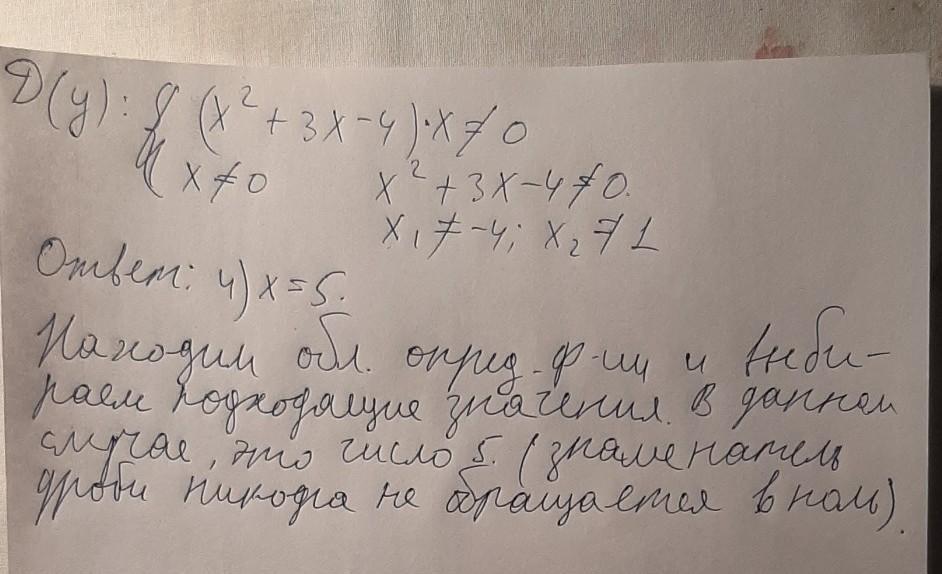 D(y): { (x² + 3x - 4)·x ≠ 0
x ≠ 0 x² + 3x - 4 ≠ 0.
x₁ ≠ -4; x₂ ≠ 1
Ответ: 4) x = 5.
Находим обл. опред. ф-ии и выби-
раем подходящие значения. В данном
случае, это число 5. (знаменатель
дроби никогда не обращается в ноль).